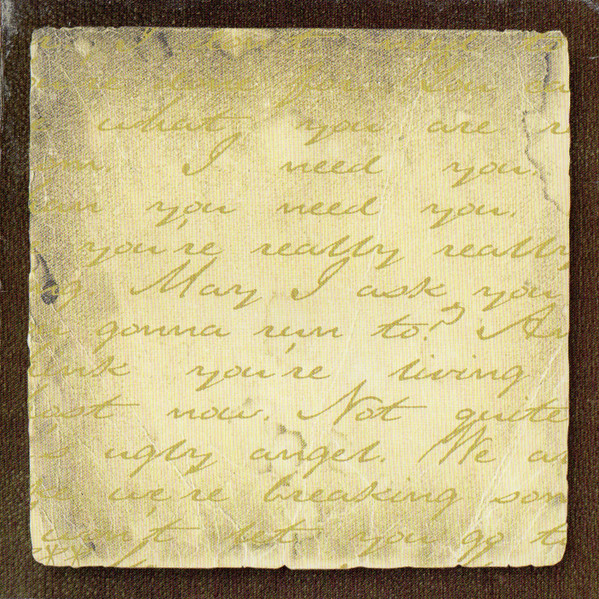 for. You ca
what you are r
I need you.
you need you.
you're really really
May I ask you
gonna run to? An
you're living
now. Not quite
's ugly angel. We a
we're breaking som
let you go t